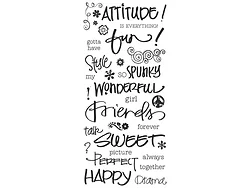 ATTITUDE!
IS EVERYTHING!
gotta have fun!
Style
my so SPUNKY
WONDERFUL
girl
friends
forever
talk? SWEET
picture PERFECT
always together
HAPPY Drama